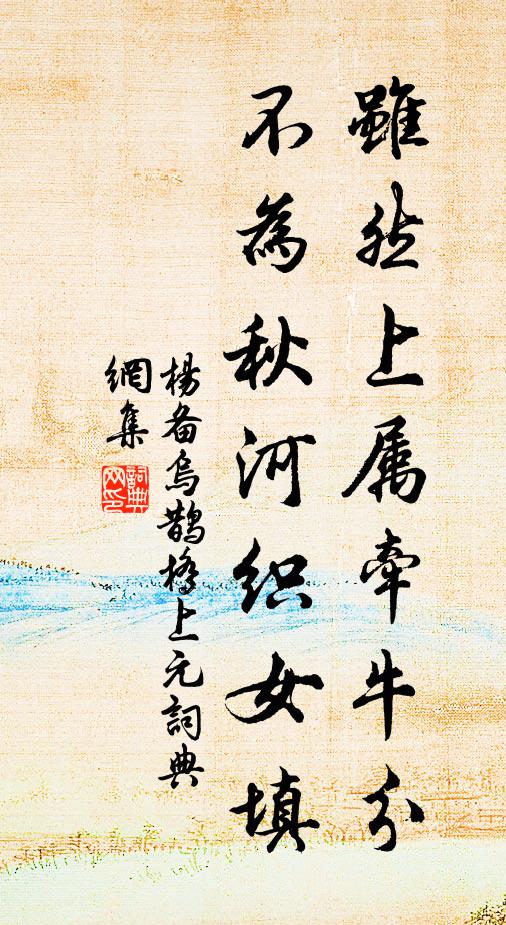 雖然上属牽牛分
不為秋河織女填
楊备烏鵲橋上元詞典
網集
詞典
网印